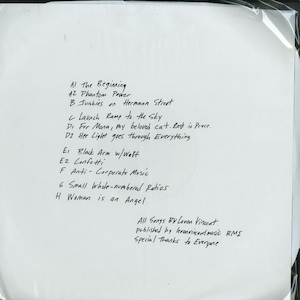 A1 The Beginning
A2 Phantom Power
B Junkies on Hermann Street
C Launch Ramp to the Sky
D1 For Mona, my beloved cat. Rest in Peace.
D2 Her Light goes Through Everything
E1 Black Arm w/Wolf
E2 Confetti
F Anti-Corporate Music
G Small Whole-numbered Ratios
H Woman is an Angel
All Songs By Levon Vincent
published by levonvincentmusic BMI
Special Thanks to Everyone